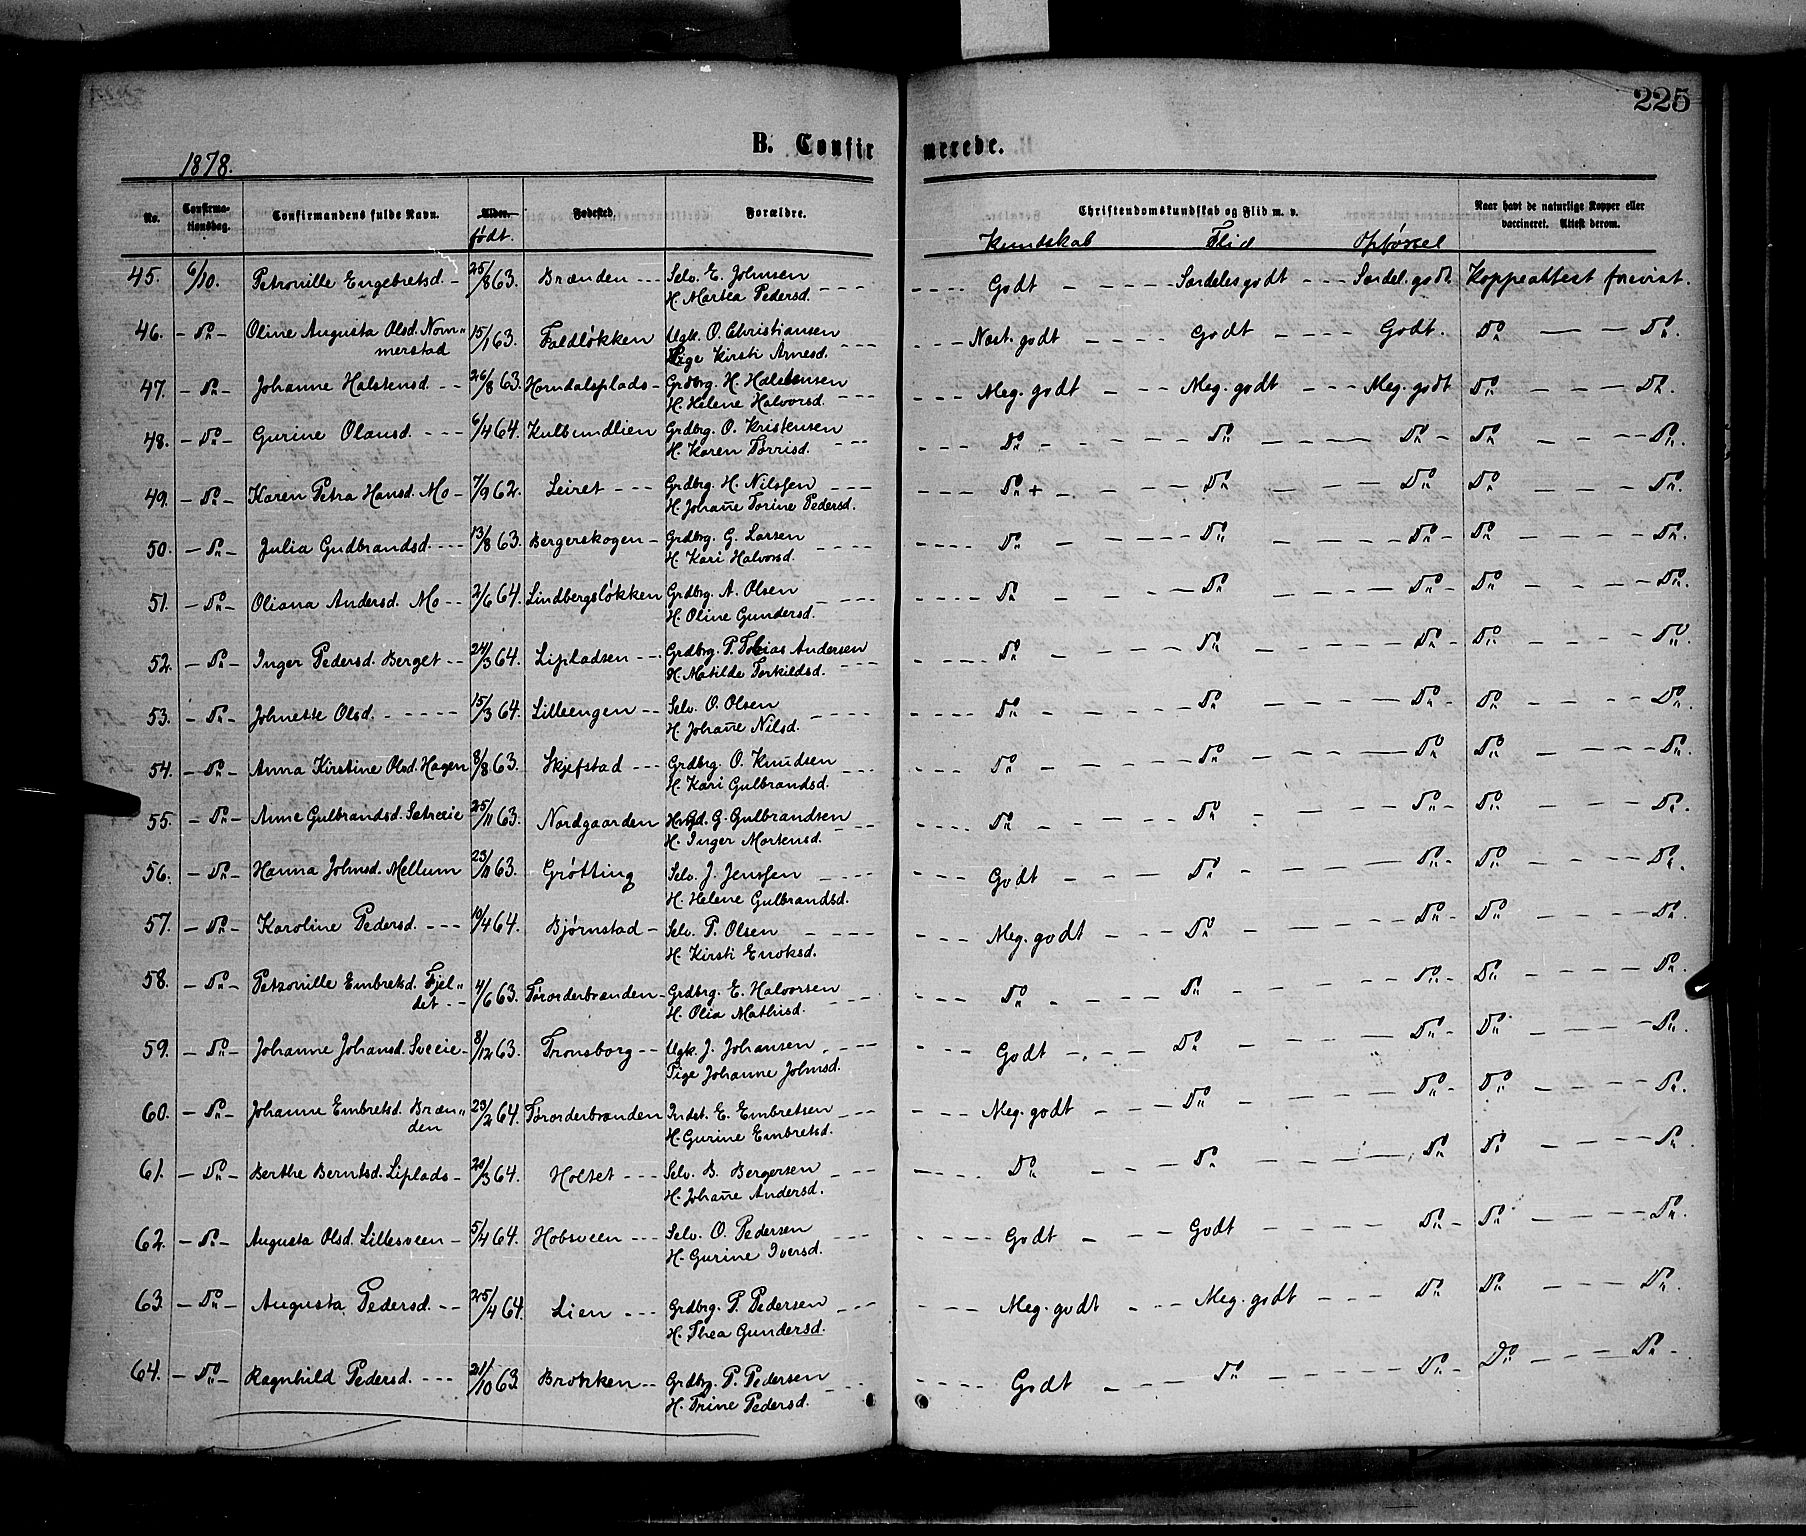 225
B. Confirmerede.
1878.
No. Confirmationsdag. Confirmandens fulde Navn. Alder. født. Fødested. Forældre. Christendomskundskab og Flid m. v. Kundskab Flid Opførsel Naar havt de naturlige Kopper eller vaccineret. Attest derom.
45. 6/10. Petronille Engebretsd. - 25/8 63. Brænden --- Selv. E. Johnsen Godt - Særdeles godt --- Særdel. godt. Koppeattest forevist.
H. Martea Pedersd.
46. - Do - Oline Augusta Olsd. Nom„ 15/1 63. Faldløkken Ugk. O. Christiansen Næst. godt Godt Godt. Do - Do.
merstad Pige Kirsti Arnesd.
47. - Do - Johanne Halstensd. -- 26/8 63. Horndalsplads - Grdbrg. H. Halstensen Meg. godt - Meg. godt -- Meg. godt Do - Do.
H. Helene Halvorsd.
48. - Do - Gurine Olausd. --- 6/4 64. Kulbundlien Grdbrg. O. Kristensen Do - Do - Do - Do - Do.
H. Karen Tørrisd.
49. - Do - Karen Petra Hansd. Mo - 7/9 62. Leiret --- Grdbrg. H. Nilssen Do + - Do - Do Do - Do.
H. Johañe Torine Pedersd.
50. - Do - Julia Gudbrandsd. --- 13/8 63. Bergerskogen - Grdbrg. G. Larsen Do - Do - Do - Do - Do.
H. Kari Halvorsd.
51. - Do - Oliana Andersd. Mo -- 2/6 64. Lindbergsløkken Grdbrg. A. Olsen Do - Do - Do - Do - Do.
H. Oline Gundersd.
52. - Do - Inger Pedersd. Berget -- 24/3 64. Lipladsen --- Grdbrg. P. Tobias Andersen Do - Do - Do - Do - Do
H. Matilde Torkildsd.
53. - Do - Johnette Olsd. ----- 15/3 64. Lilleengen -- Selv. O. Olsen Do - Do - Do - Do - Do
H. Johañe Nilsd.
54. - Do - Anna Kirstine Olsd. Hagen 8/8 63. Skjefstad --- Grdbrg. O. Knudsen Do - Do - Do Do - Do.
H. Kari Gulbrandsd.
55. - Do - Anne Gulbrandsd. Sætreeie 25/11 63. Nordgaarden G. Gulbrandsen Do - Do - Do - Do - Do.
H. Inger Mortensd.
56. - Do - Hanna Johnsd. Mellum 23/11 63. Grøtting Selv. J. Jenssen Godt - Do - Do - Do - Do.
H. Helene Gulbrandsd.
57. - Do - Karoline Pedersd. --- 19/4 64. Bjørnstad - Selv. P. Olsen Meg. godt --- Do - Do - Do - Do.
H. Kirsti Enoksd.
58. - Do - Petronille Embretsd. Fjel„ 4/6 63. Tørorderbrænden - Grdbrg. E. Halvorsen Do - Do - Do - Do - Do.
det -- H. Olia Mathisd.
59. - Do - Johanne Johansd. Sveeie - 8/12 63. Tronsborg -- Ugk. J. Johansen Godt - Do - Do - Do - Do.
Pige Johanne Johnsd.
60. - Do - Johanne Embretsd. Bræn„ 29/2 64. Tørorderbrænden Indst. E. Embretsen Meg. godt - Do - Do - Do - Do.
den H. Gurine Embretsd.
61. - Do - Berthe Berntsd. Liplads - 20/3 64. Holtet --- Selv. B. Bergersen Do - Do - Do Do - Do
H. Johañe Andersd.
62. - Do - Augusta Olsd. Lillesveen - 5/4 64. Hobsveen --- Selv. O. Pedersen Godt - Godt - Do - Do - Do.
H. Gurine Iversd.
63. - Do - Augusta Pedersd. -- 25/4 64. Lien --- Grdbrg. P. Pedersen Meg. godt --- Meg. godt --- Do Do - Do.
H. Thea Gundersd.
64. - Do - Ragnhild Pedersd. --- 21/10 63. Brokken -- Grdbrg. P. Pedersen Godt - Do - Do - Do - Do -
H. Trine Pedersd.